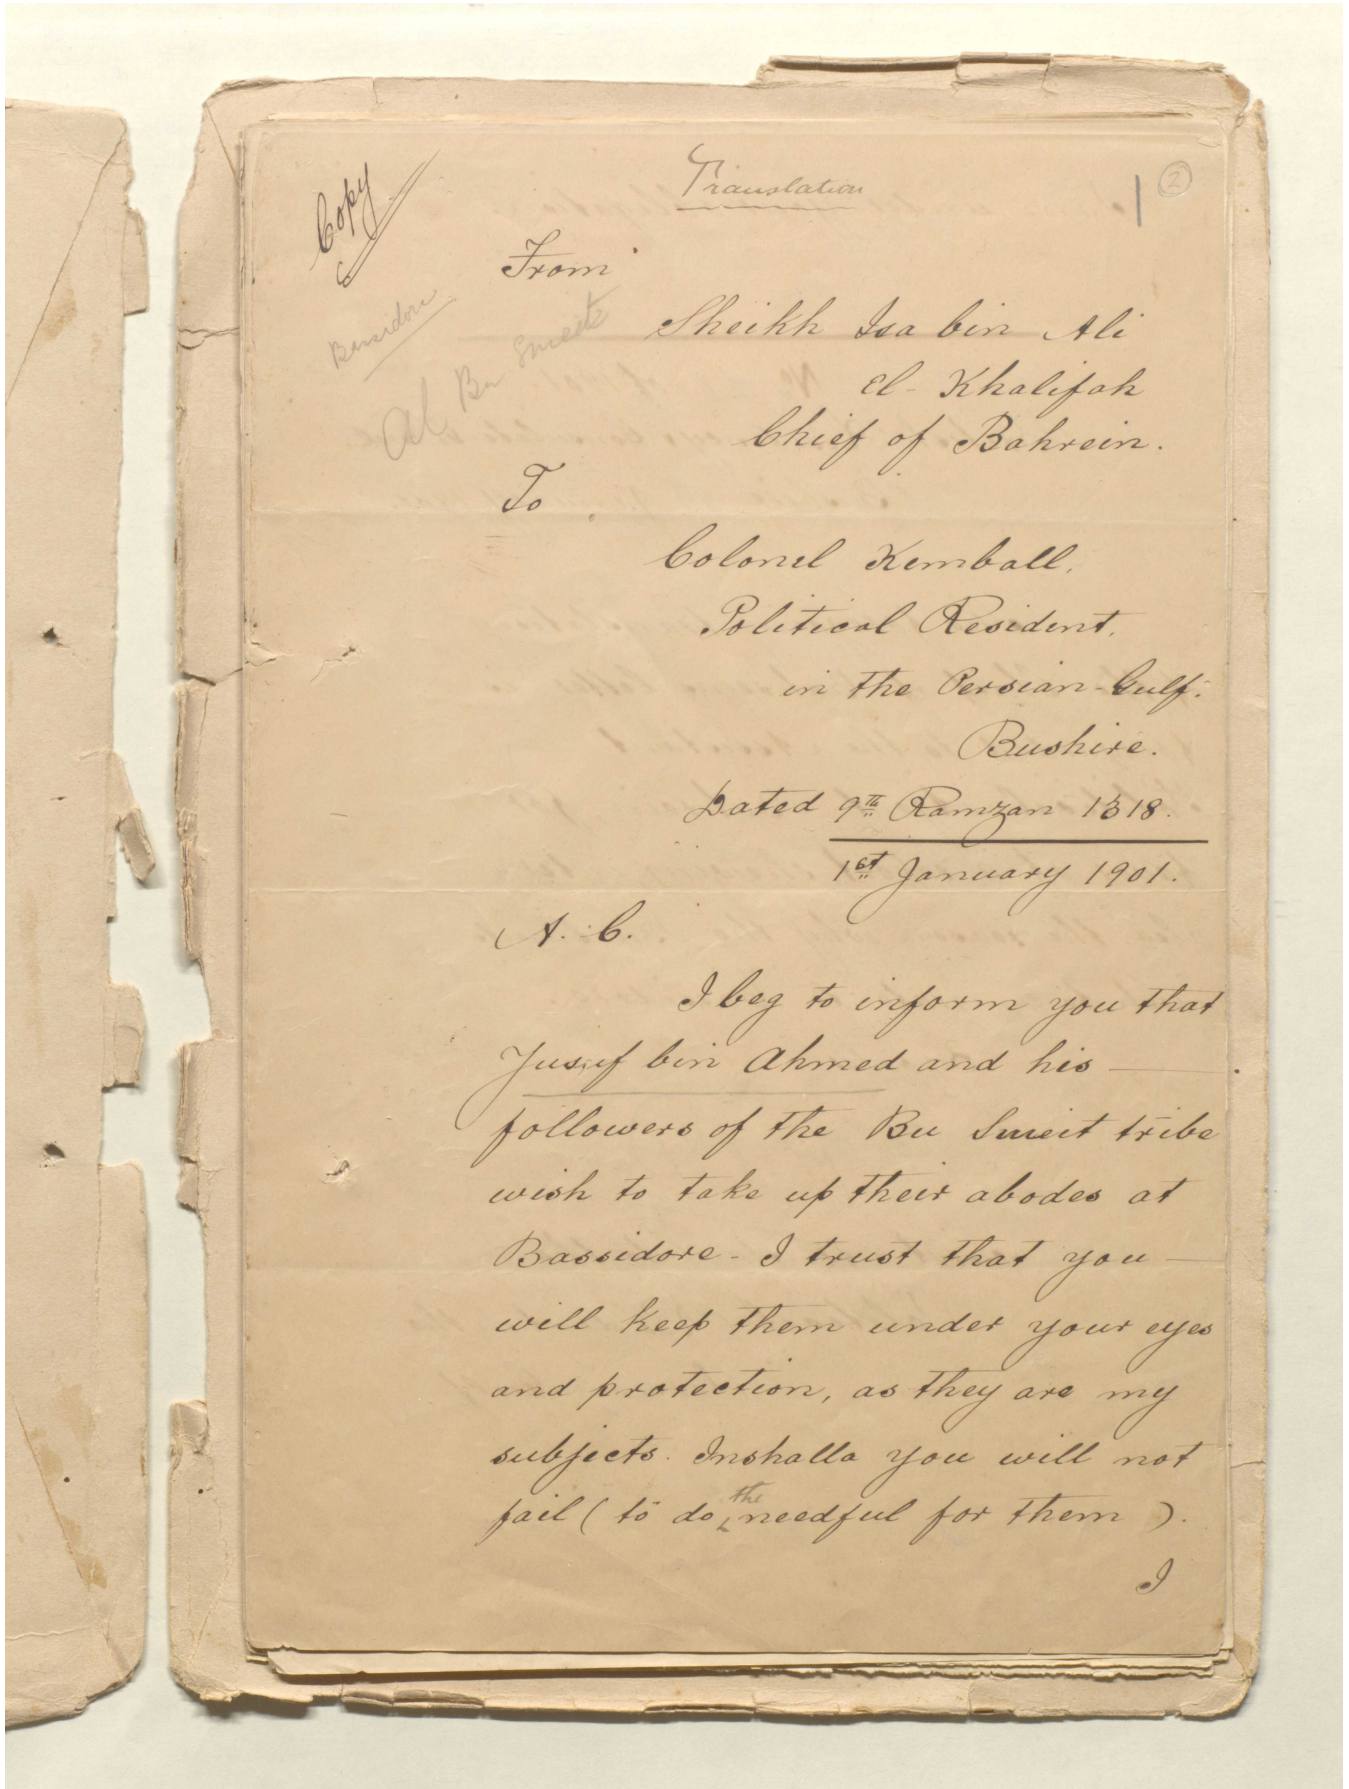 Translation
1 2
Copy
Bassidore
Al Bu Smeit
From
Sheikh Isa bin Ali
el-Khalifah
Chief of Bahrein.
To
Colonel Kemball.
Political Resident.
in the Persian-Gulf.
Bushire.
Dated 9th Ramzan 1318.
1st January 1901.
A. C.
I beg to inform you that
Yusuf bin Ahmed and his
followers of the Bu Smeit tribe
wish to take up their abodes at
Bassidore - I trust that you
will keep them under your eyes
and protection, as they are my
subjects. Inshalla you will not
fail (to do the needful for them).
I